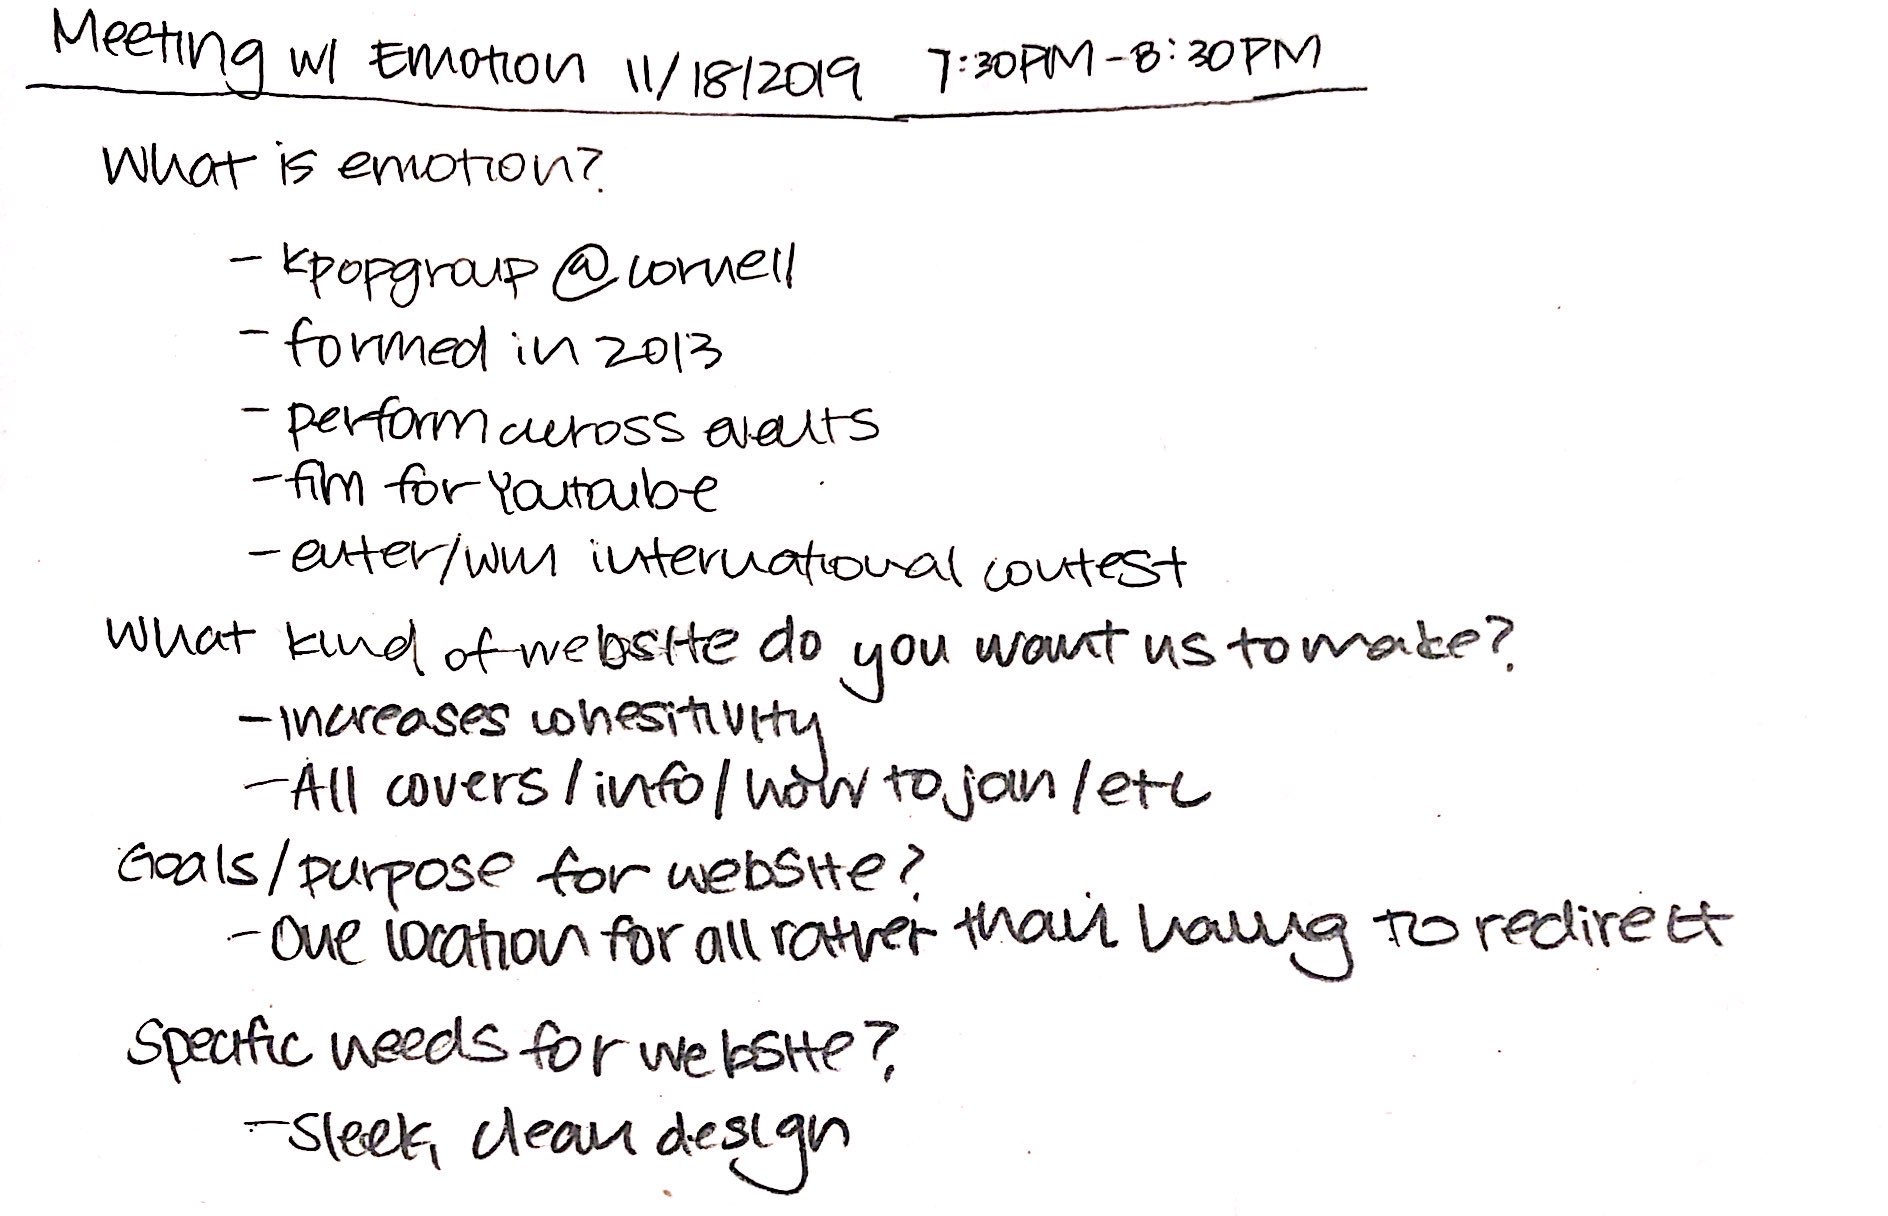 Meeting w/ Emotion 11/18/2019 7:30PM-8:30PM
What is emotion?
- kpop group @ cornell
- formed in 2013
- perform across events
- film for Youtube
- enter/win international contest
What kind of website do you want us to make?
- increases cohesitivity
- All covers/info/how to join/etc
Goals/purpose for website?
- One location for all rather than having to redirect
Specific needs for website?
- Sleek, clean design